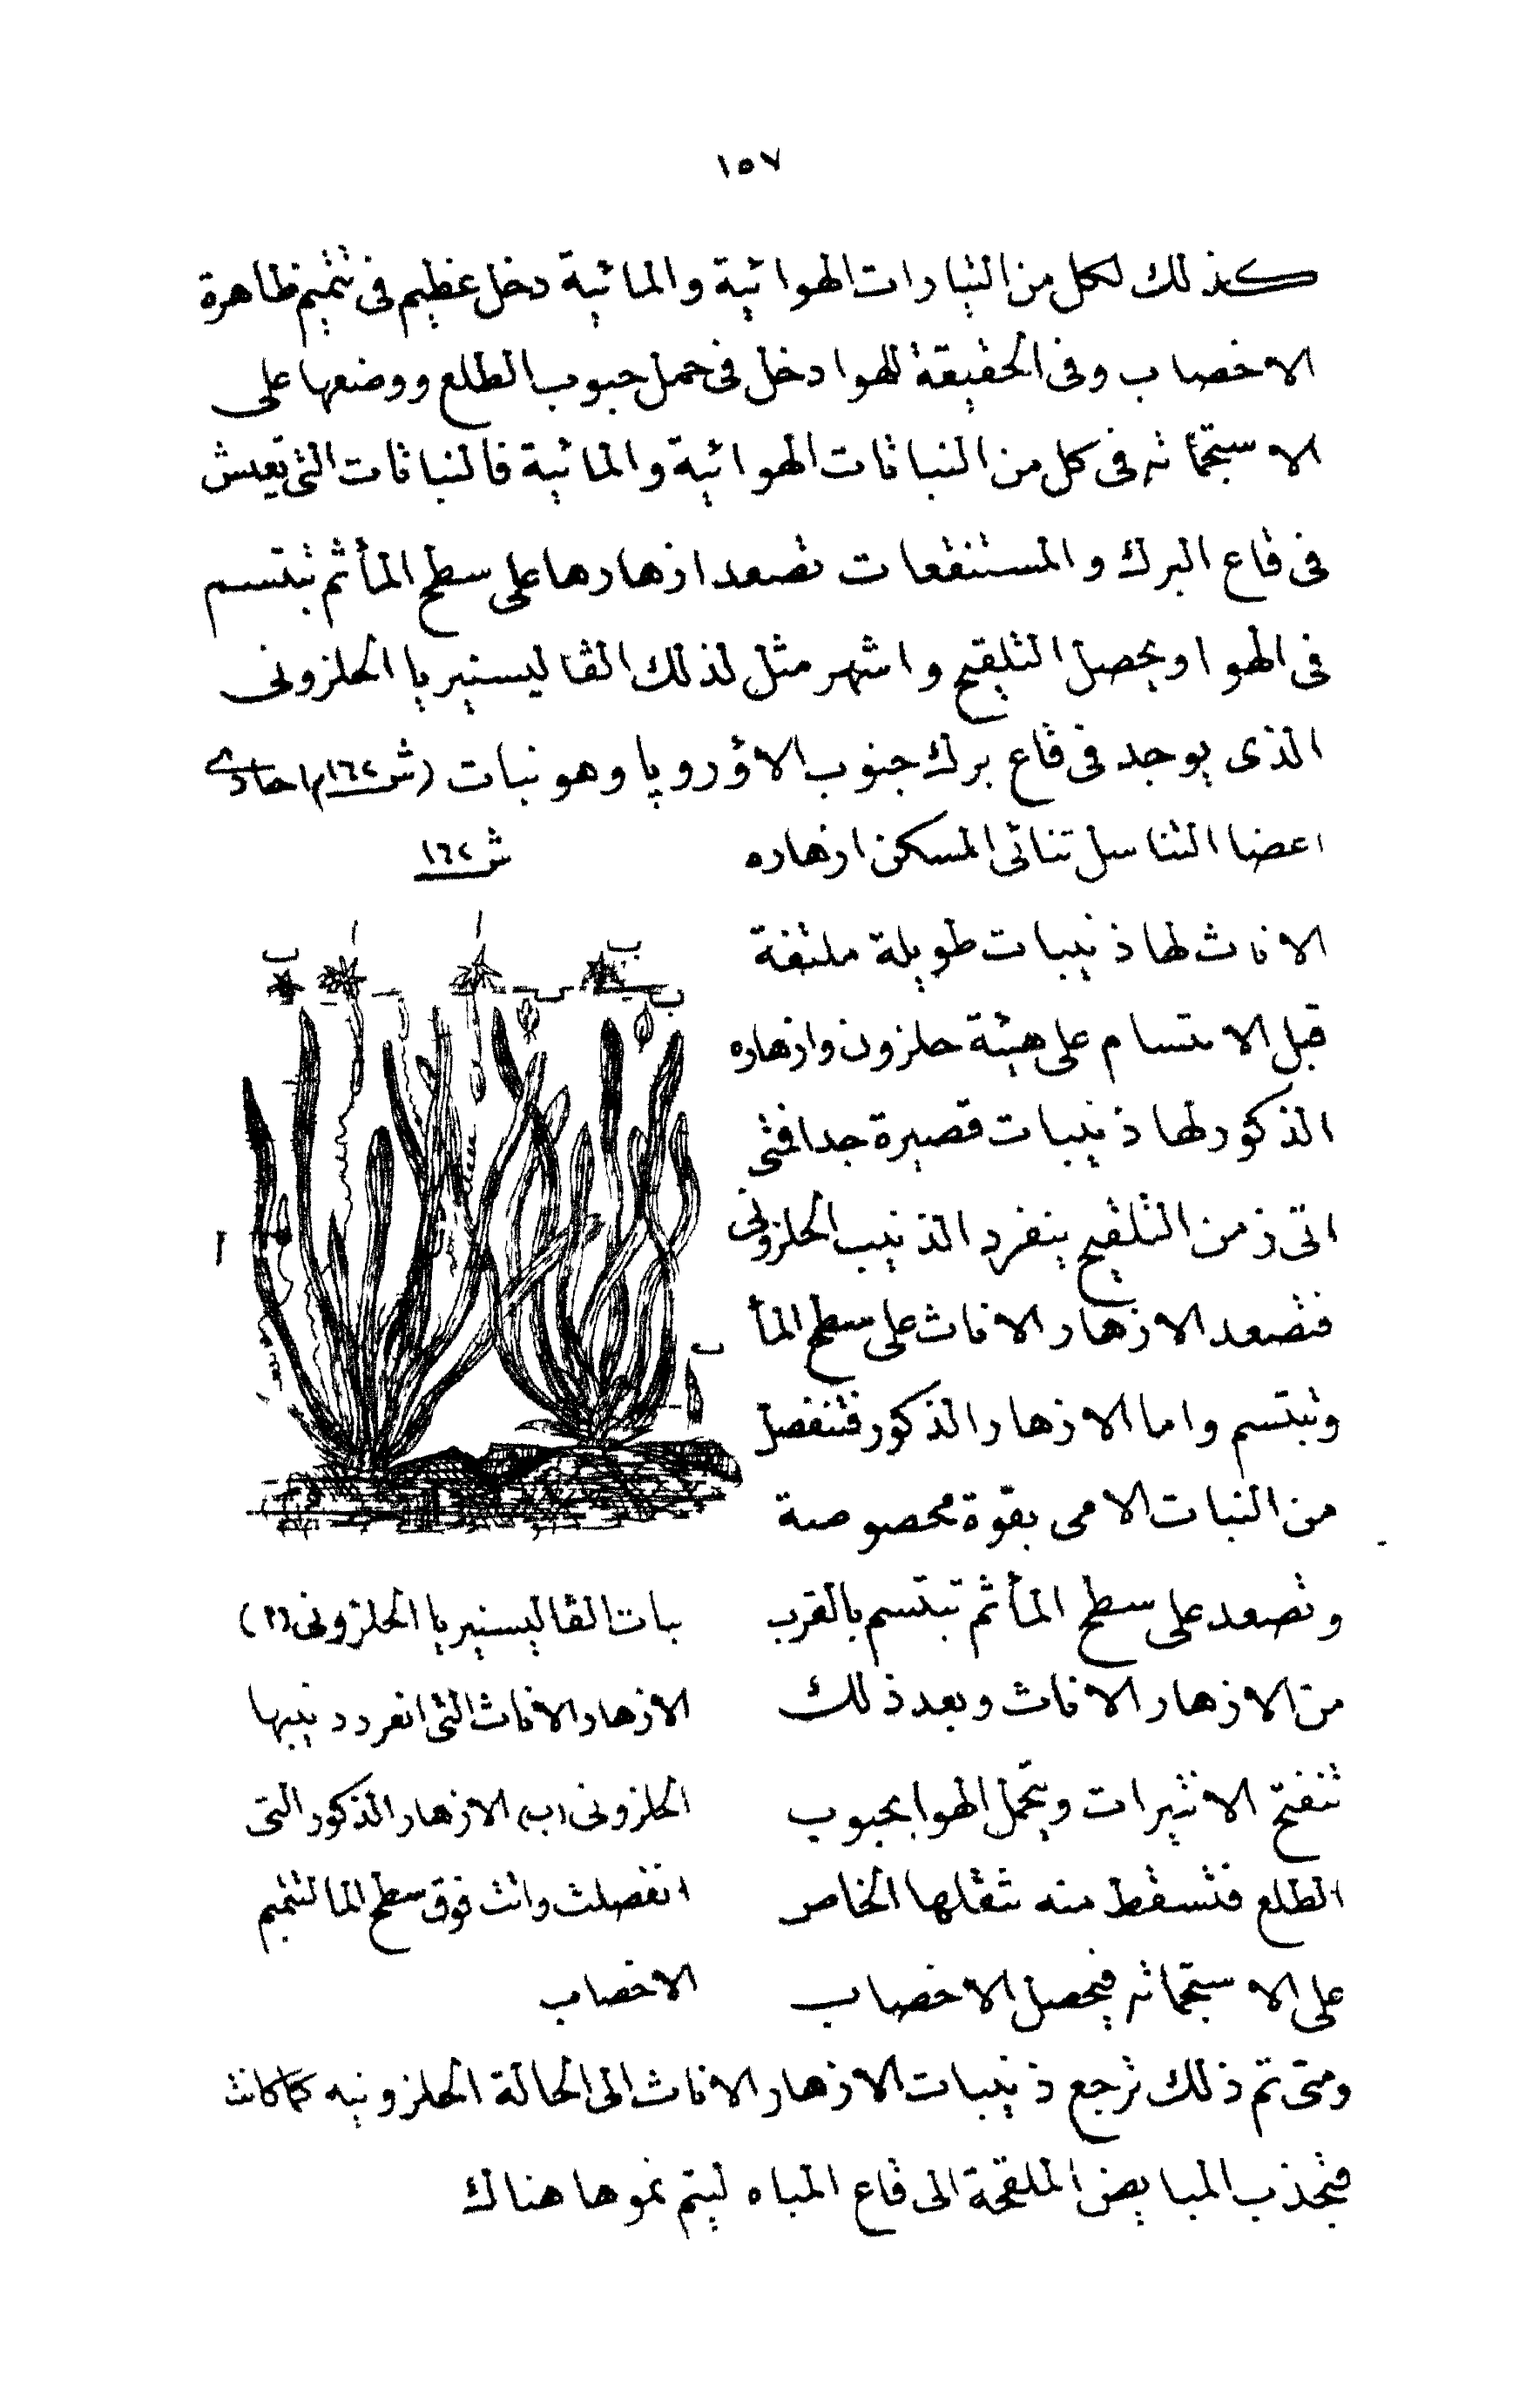 ١٥٧
كذلك لكل من التيارات الهوائية والمائية دخل عظيم فى تتميم ظاهرة
الاخصاب وفى الحقيقة للهوا دخل فى حمل حبوب الطلع ووضعها على
الاستجماته فى كل من النباتات الهوائية والمائية فالنباتات التى تعيش
فى قاع البرك والمستنقعات تصعد ازهارها على سطح المأ ثم تبتسم
فى الهوا ويحصل التلقيح واشهر مثل لذلك الڤاليسنيريا الحلزونى
الذى يوجد فى قاع برك جنوب الاؤروپا وهو نبات (ش ١٦٢) احادى
اعضا التناسل تنائى المسكن ازهاره
الاناث لها ذنيبات طويلة ملتفة
قبل الابتسام على هيئة حلزون وازهاره
الذكور لها ذنيبات قصيرة جدا فمتى
اتى زمن التلقيح ينفرد الذنيب الحلزونى
فتصعد الازهار الاناث على سطح المأ
وتبتسم واما الازهار الذكور فتنفصل
من النبات الامى بقوة مخصوصة
وتصعد على سطح المأ ثم تبتسم بالقرب
من الازهار الاناث وبعد ذلك
تنفتح الانتيرات ويتحمل الهوا بحبوب
الطلع فتسقط منه بثقلها الخاص
على الاستجماته فيحصل الاخصاب
ش ١٦٢
ب
ا
ا
ب
ب
ا
ب
نبات الڤاليسنيريا الحلزونى (ا)
الازهار الاناث التى انفرد ذنيبها
الحلزونى (ب) الازهار الذكور التى
انفصلت واتت فوق سطح الما لتتميم
الاخصاب
ومتى تم ذلك ترجع ذنيبات الازهار الاناث الى الحالة الحلزونيه كما كانت
فيجذب المبايض الملقحة الى قاع المياه ليتم نموها هناك